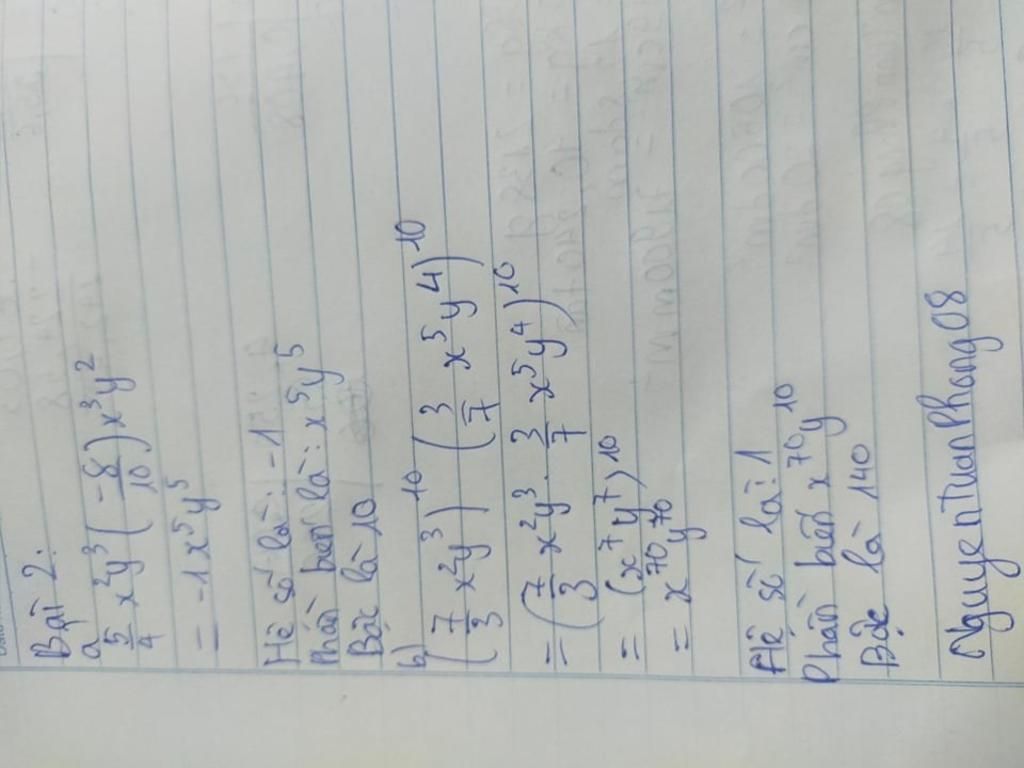 Bài 2:
a) 5/4 x²y³ (-8/10) x³y²
= -1x⁵y⁵
Hệ số là: -1
Phần biến là: x⁵y⁵
Bậc là 10
b)
(7/3 x²y³)¹⁰ (3/7 x⁵y⁴)¹⁰
= (7/3 x²y³ . 3/7 x⁵y⁴)¹⁰
= (x⁷y⁷)¹⁰
= x⁷⁰y⁷⁰
Hệ số là: 1
Phần biến x⁷⁰y¹⁰
Bậc là 140
NguyenTuanPhong08